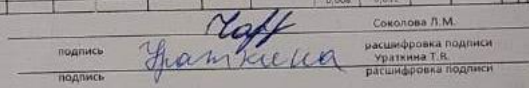 Соколова Л.М.
подпись расшифровка подписи
Ураткина Ураткина Т.В.
подпись расшифровка подписи